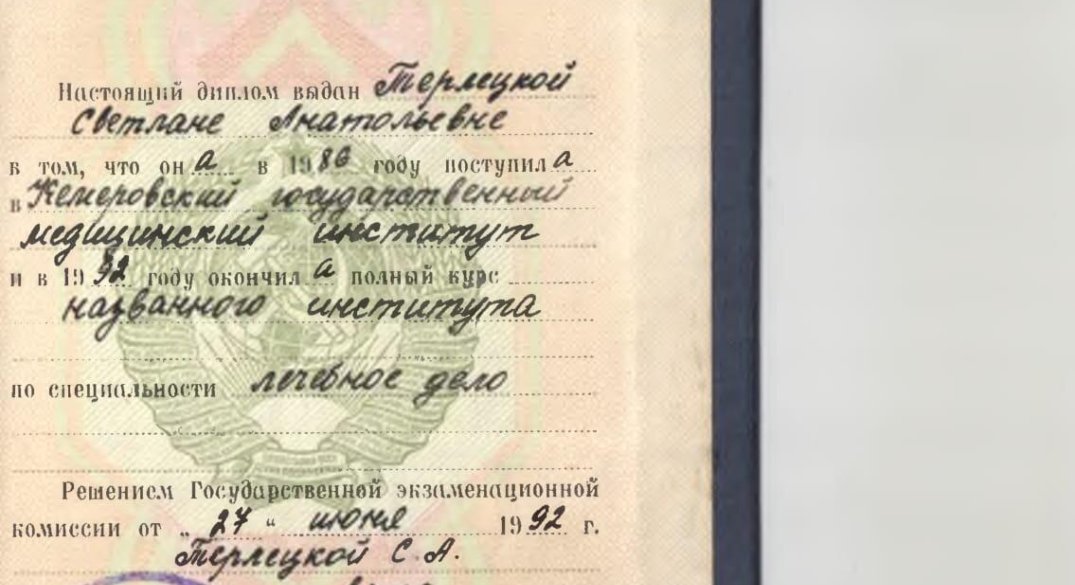 Настоящий диплом выдан Терлецкой
Светлане Анатольевне
в том, что он а в 1986 году поступил а
в Кемеровский государственный
медицинский институт
и в 1992 году окончил а полный курс
названного института
по специальности лечебное дело
Решением Государственной экзаменационной
комиссии от „ 27 “ июня 1992 г.
Терлецкой С. А.